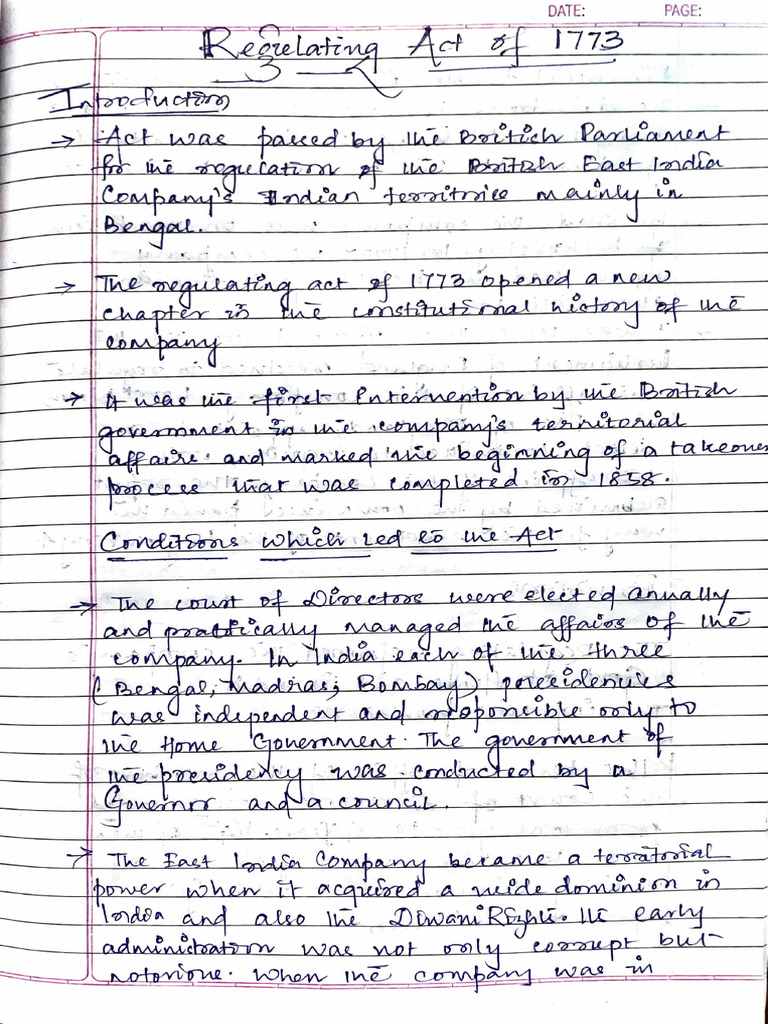 DATE: PAGE:
Regulating Act of 1773
Introduction
→ Act was passed by the British Parliament
for the regulation of the British East India
Company's Indian territories mainly in
Bengal.
→ The regulating act of 1773 opened a new
chapter in the constitutional history of the
company
→ It was the first Intervention by the British
government in the company's territorial
affairs and marked the beginning of a takeover
process that was completed in 1858.
Conditions which led to the Act
→ The court of Directors were elected annually
and practically managed the affairs of the
company. In India each of the three
(Bengal, Madras, Bombay) presidencies
was independent and responsible only to
the Home Government. The government of
the presidency was conducted by a
Governor and a council.
→ The East India Company became a territorial
power when it acquired a wide dominion in
India and also the Diwani Rights. Its early
administration was not only corrupt but
notorious. When the company was in